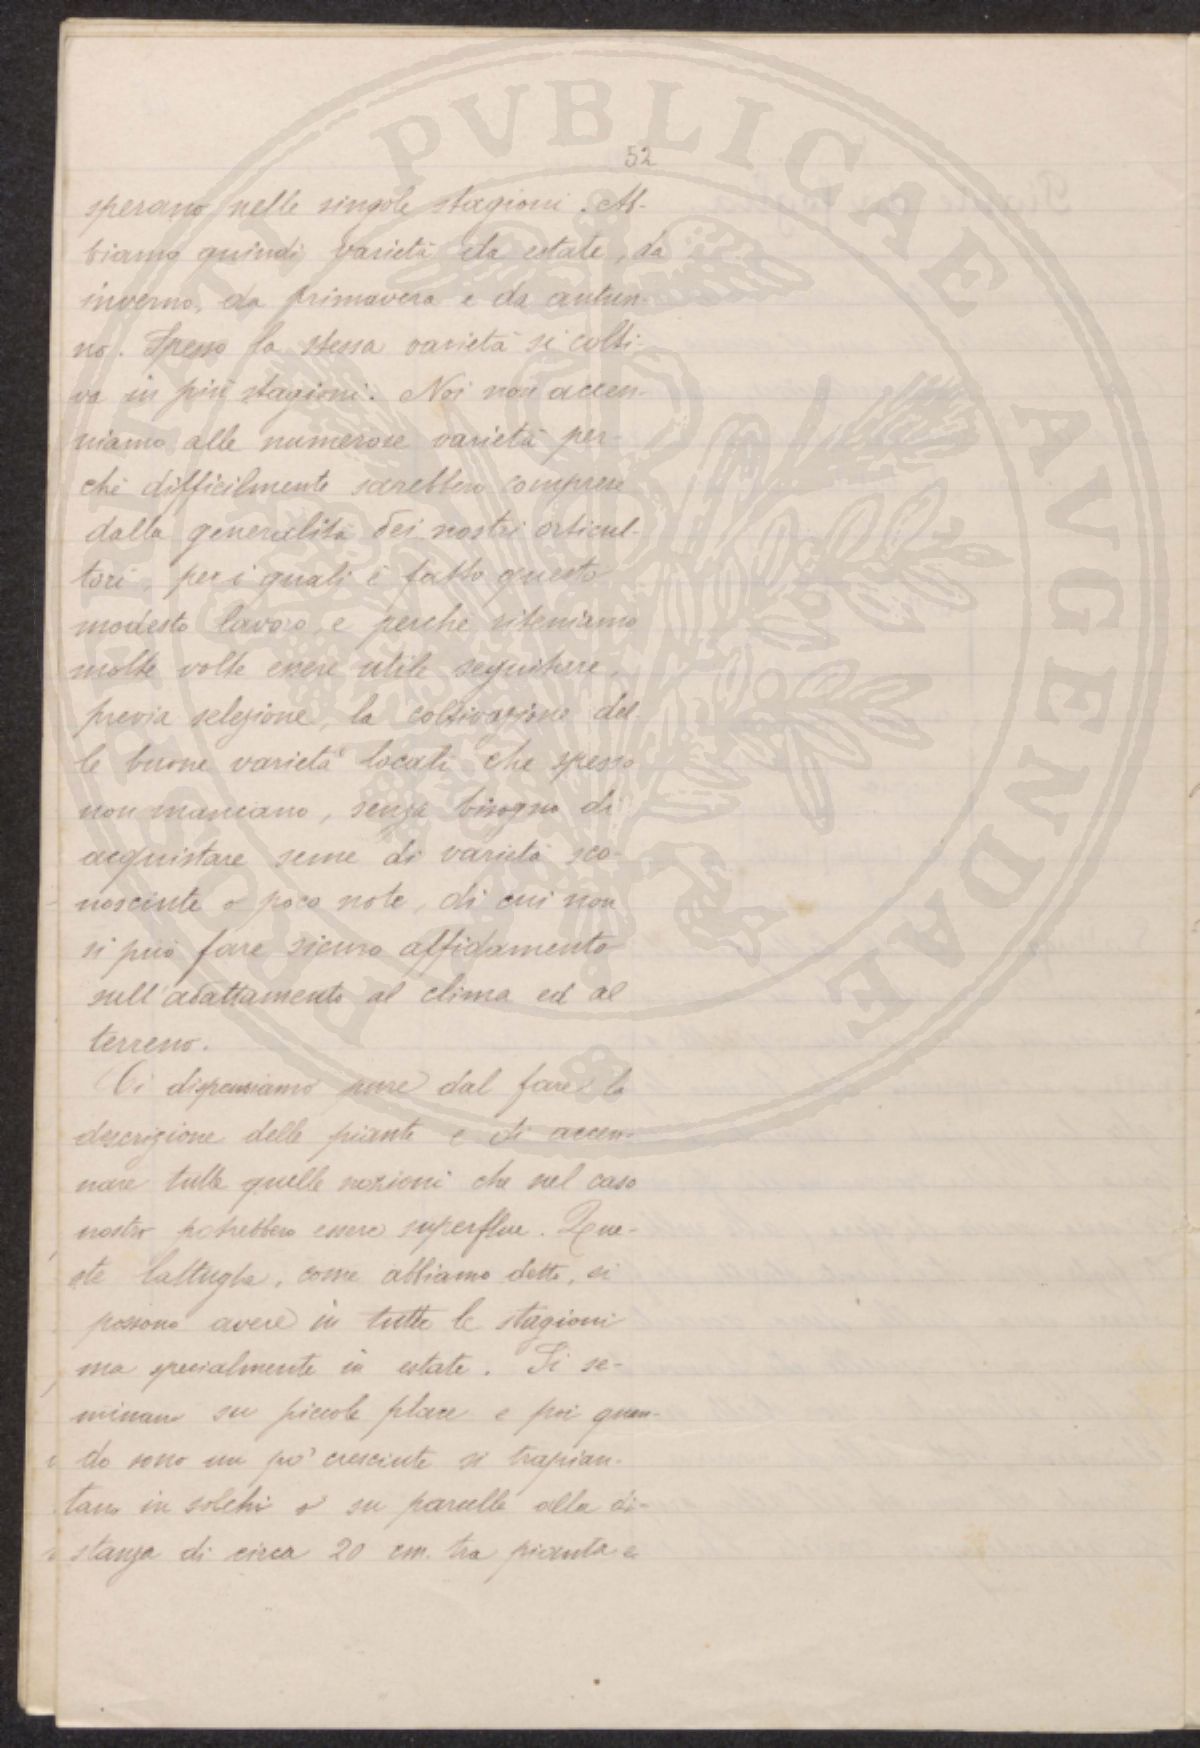 52
sperano nelle singole stagioni. Ab-
biamo quindi varietà da estate, da
inverno, da primavera e da autun-
no. Spesso la stessa varietà si colti-
va in più stagioni. Noi non accen-
niamo alle numerose varietà per-
chè difficilmente sarebbero comprese
dalla generalità dei nostri orticul-
tori, per i quali è fatto questo
modesto lavoro, e perchè riteniamo
molte volte essere utile seguitare,
previa selezione, la coltivazione del
le buone varietà locali che spesso
non mancano, senza bisogno di
acquistare seme di varietà sco-
nosciute o poco note, di cui non
si può fare sicuro affidamento
sull'adattamento al clima ed al
terreno.
Ci dispensiamo pure dal fare la
descrizione delle piante e di accen-
nare tutte quelle nozioni che nel caso
nostro potrebbero essere superflue. Que-
ste lattughe, come abbiamo detto, si
possono avere in tutte le stagioni
ma specialmente in estate. Si se-
minano su piccole place e poi quan-
do sono un po' cresciute si trapian-
tano in solchi o su parcelle alla di-
stanza di circa 20 cm. tra pianta e
PVBLICAE AVGENDAE